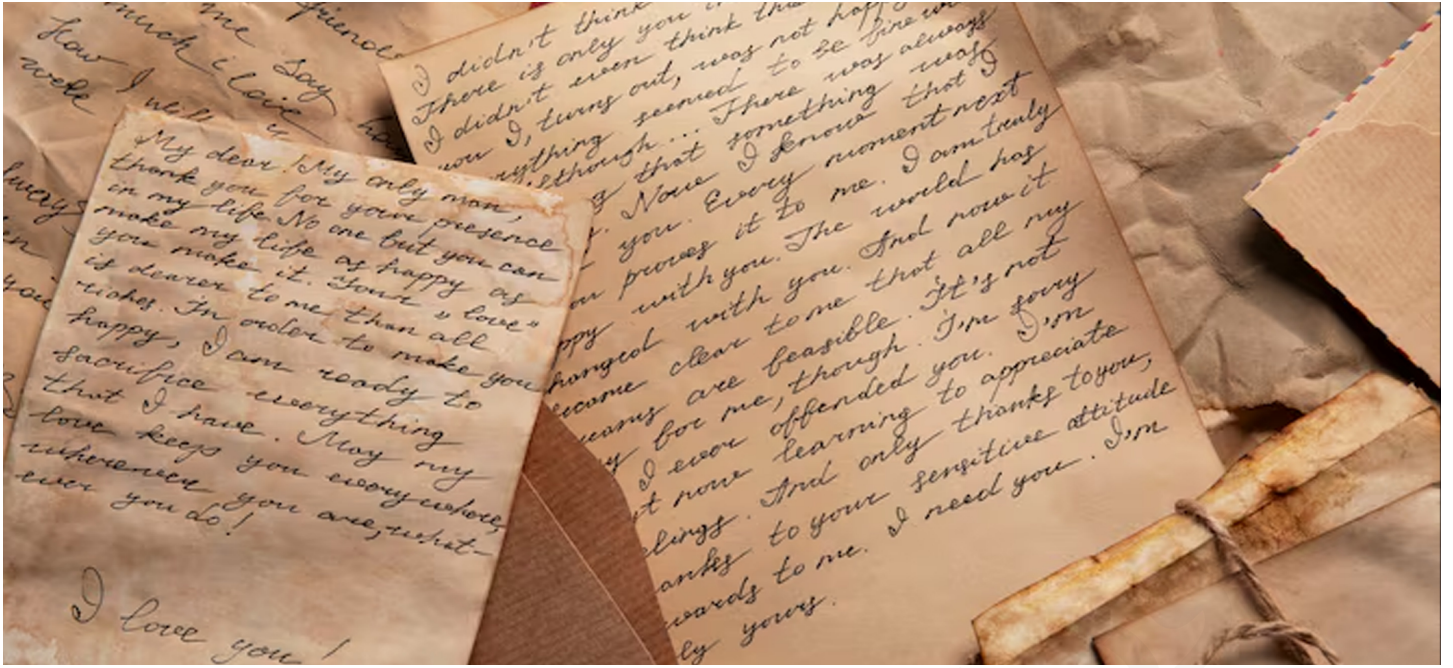 friends
much i love
me say
How I will
were
My dear! My only man,
thank you for your presence
in my life. No one but you can
make my life as happy as
you make it. Your "love"
is dearer to me than all
riches. In order to make you
happy, I am ready to
sacrifice everything
that I have. May my
love keeps you everywhere,
wherever you are, what-
ever you do!
I love you!
I didn't think
There is only you
I didn't even think
you I, turns out, was not happy
everything seemed to be fine
Although... There was always
that something was
. Now I know that I
you. Every moment next
proves it to me. I am truly
with you. The world has
with you. And now it
clear to me that all my
are feasible. It's not
for me, though. I'm sorry
I ever offended you. I'm
now learning to appreciate
. And only thanks to you,
to your sensitive attitude
to me. I need you. I'm
yours.